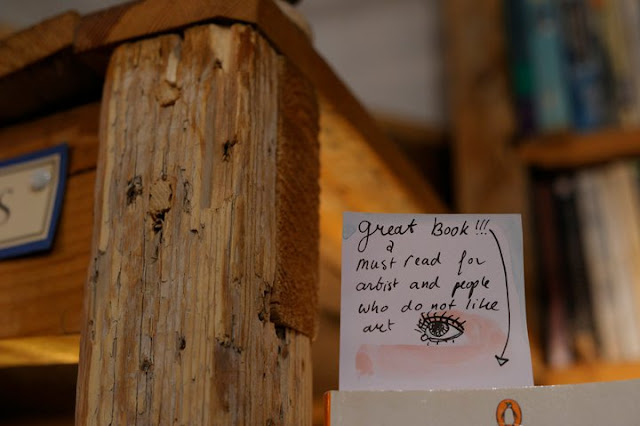 S
great book!!!
a
must read for
artist and people
who do not like
art